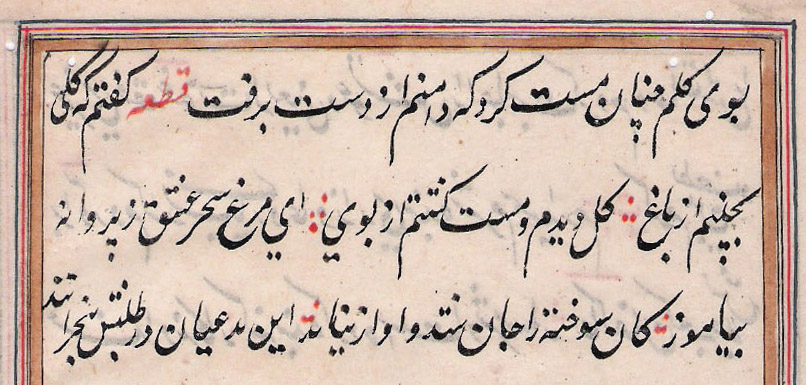 بوی گلم چنان مست کرد که دامنم از دست برفت قطعه گفتم که گلی
بچینم از باغ گل دیدم و مست گشتم از بوی ای مرغ سحر عشق ز پروانه
بیاموز کان سوخته را جان شد و اواز نیامد این مدعیان در طلبش بیخبرانند